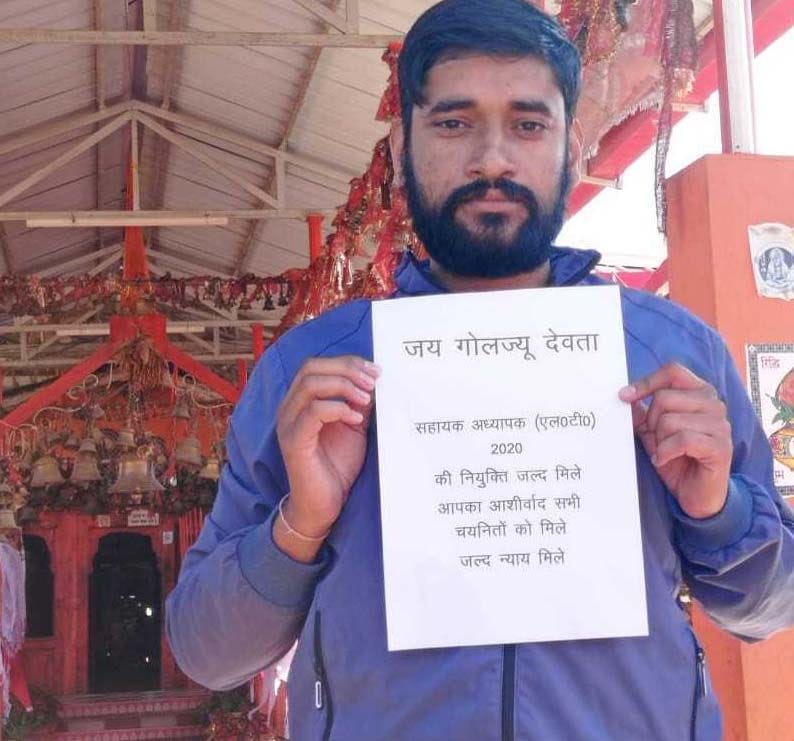 जय गोलज्यू देवता
सहायक अध्यापक (एल0टी0)
2020
की नियुक्ति जल्द मिले
आपका आशीर्वाद सभी
चयनितों को मिले
जल्द न्याय मिले
रिद्धि